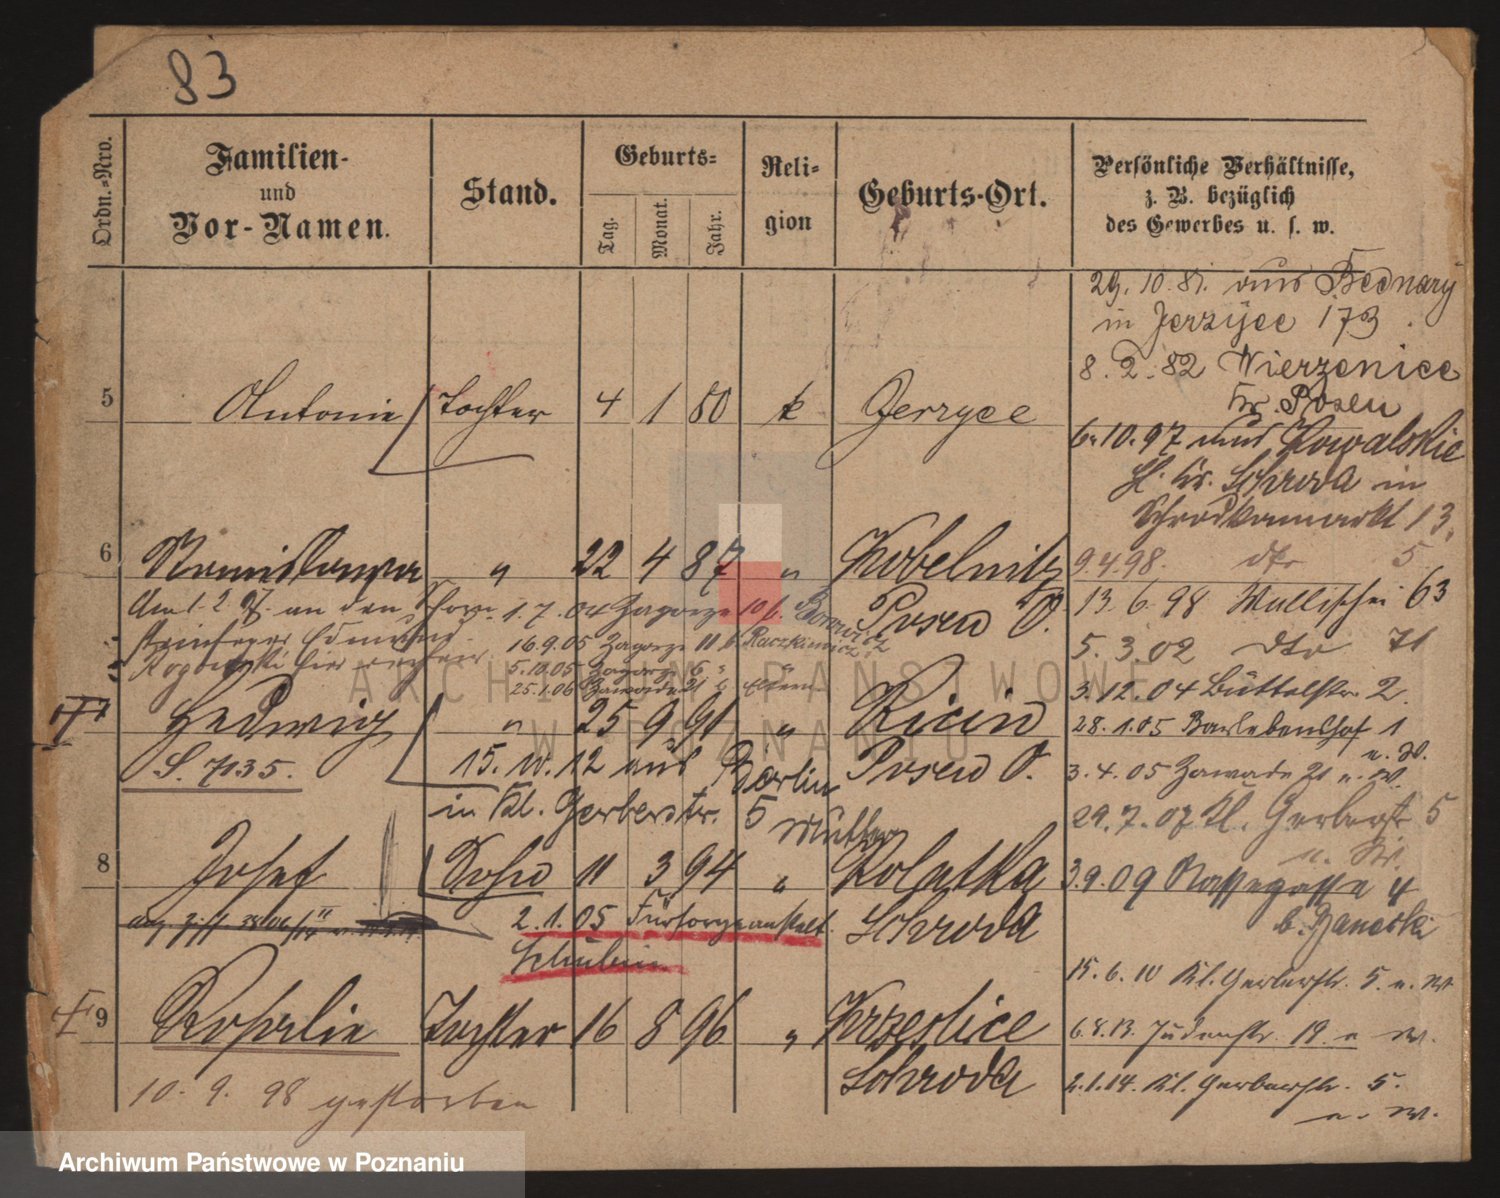 83
Ordn.-Nro.
Familien-
und
Vor-Namen.
Stand.
Geburts-
Tag.
Monat.
Jahr.
Reli-
gion
Geburts-Ort.
Persönliche Verhältnisse,
z. B. bezüglich
des Gewerbes u. s. w.
29. 10. 81. aus Bednary
in Jerzyce 173.
8. 2. 82 Wierzenice
Kr. Posen
5 Antonie Tochter 4 1 80 k Jerzyce
6. 10. 97 aus Kowalskie
Kr. Schroda in
Schrodkamarkt 13.
6 Stanislawa " 22 4 87 " Kobelnitz
Posen O.
9. 4. 98. dto 5
13. 6. 98 Wallischei 63
an den
1. 7. 04 Zagorze 10 b.
16. 9. 05 Zagorze 11 b. Raczkiewicz
5. 10. 05 Zagorze 6
25. 1. 06 Zawade 21 b. Eltern
5. 3. 02 dto 71
3. 12. 04 Büttelstr. 2.
7 Hedwig " 25 9 91 " Kicin
Posen O.
S. 7135.
28. 1. 05 Barlebenshof 1
u. W.
15. 10. 12 aus Berlin
in Kl. Gerberstr. 5
Mutter
3. 4. 05 Zawade 21 u. W.
29. 7. 07 Kl. Gerberstr. 5
u. W.
8 Josef Sohn 11 3 94 " Kolatka
Schroda
3. 9. 09 Nassegasse 4
b. Banaski
2. 1. 05 Fürsorgeanstalt
Schubin
15. 6. 10 Kl. Gerberstr. 5. u. W
9 Rosalie Tochter 16 8 96 " Krzeslice
Schroda
6. 8. 13. Judenstr. 19. u W.
10. 9. 98 gestorben
2. 1. 14. Kl. Gerberstr. 5.
u. W.
ARCHIWUM PAŃSTWOWE
W POZNANIU
Archiwum Państwowe w Poznaniu